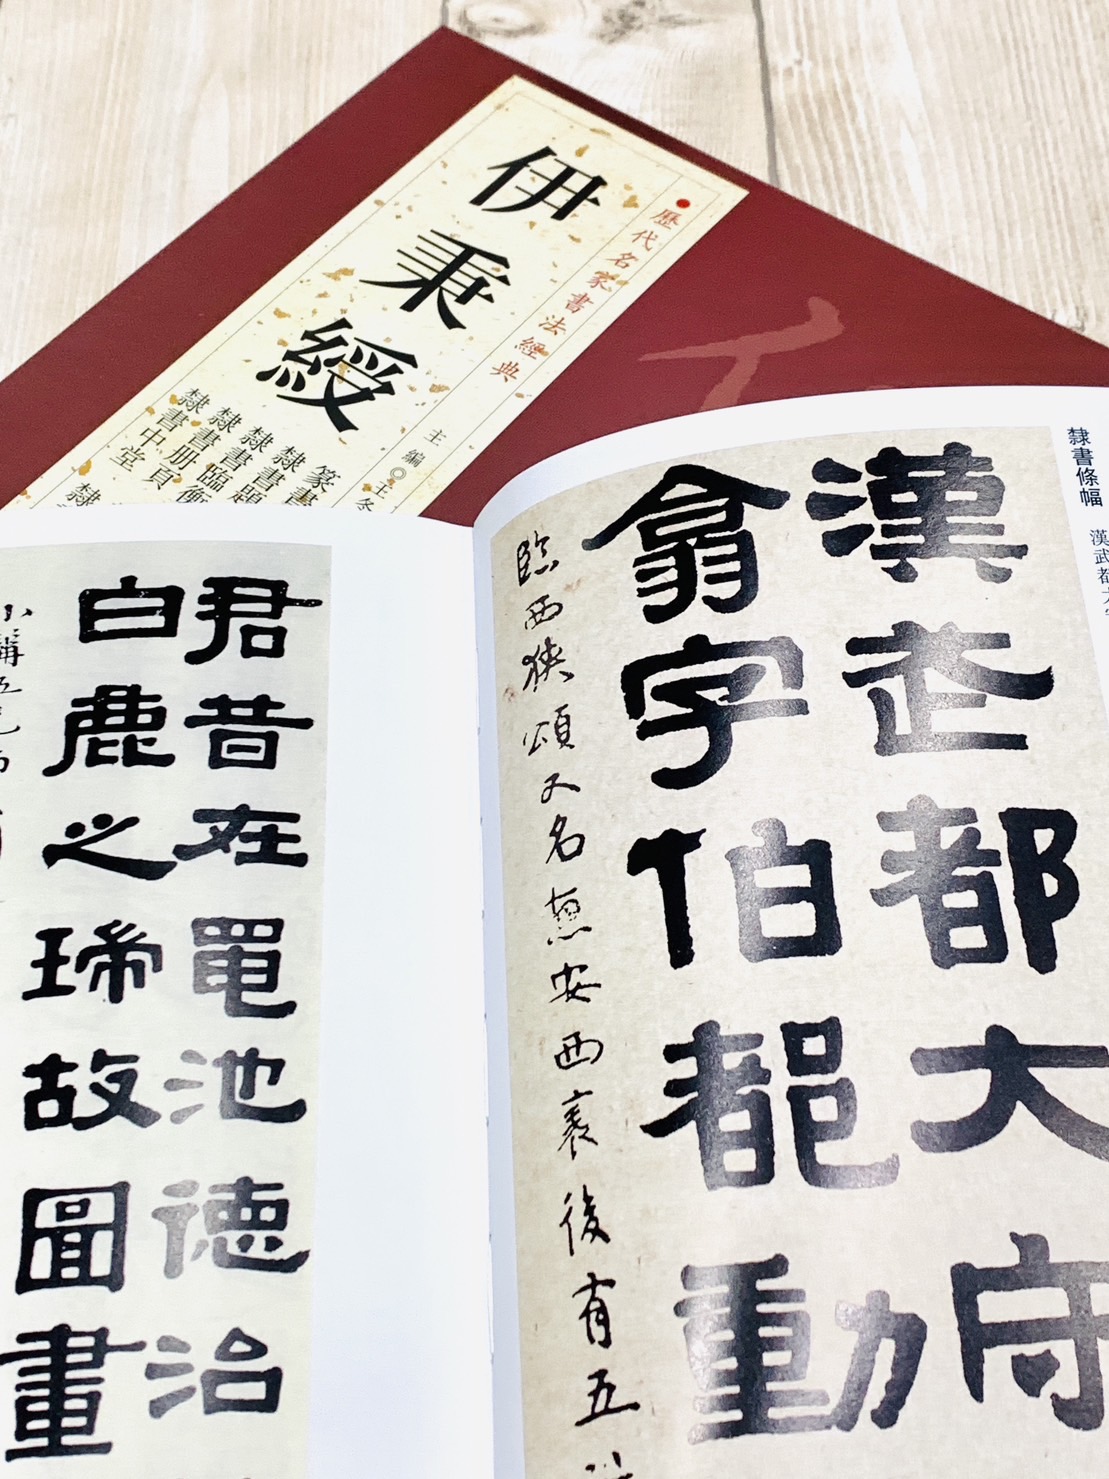 歷代名家書法經典
伊秉綬
主編◎王冬
篆書
隸書
隸書題
隸書臨衡
隸書册頁
隸書中堂
隸書條幅
漢武都太守
漢武都大守
翕字伯都動
臨西狹頌又名惠安西表後有五
君昔在黽池德治
白鹿之瑞故圖畫